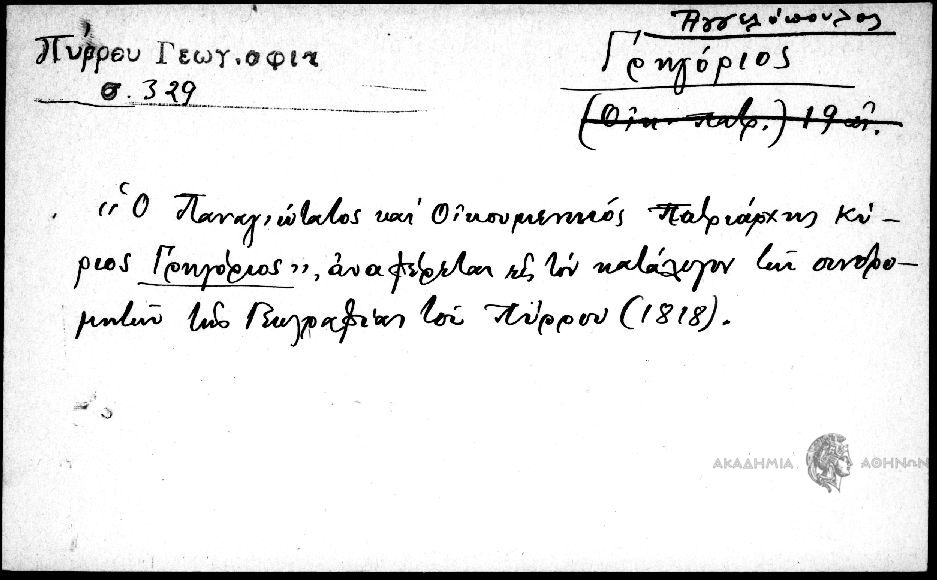 Πύρρου Γεωγραφία
σ. 329
Ἀγγελόπουλος
Γρηγόριος
(Οἰκ. Πατρ.) 19 αἰ.
„Ὁ Παναγιώτατος καὶ Οἰκουμενικός Πατριάρχης Κύ-
ριος Γρηγόριος”, ἀναφέρεται εἰς τὸν κατάλογον τῶν συνδρο-
μητῶν τῆς Γεωγραφίας τοῦ Πύρρου (1818).
ΑΚΑΔΗΜΙΑ ΑΘΗΝΩΝ